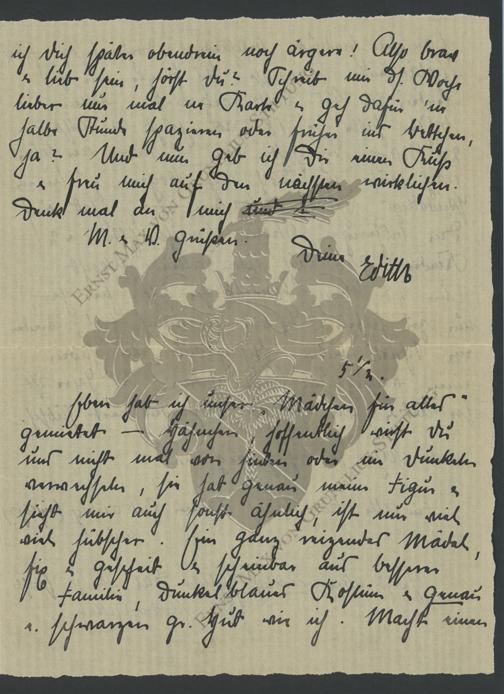 ich dich später obendrein noch ärgere! Also brav
& lieb sein, hörst Du? Schreib mir d. Woche
lieber nur mal ne Karte & geh dafür 'ne
halbe Stunde spazieren oder früher ins Bettchen,
ja? Und nun geb ich Dir einen Kuß
& freu mich auf den nächsten wirklichen.
Denk mal an mich
M. & V. grüßen. Deine Edith
5 1/2.
Eben hab ich unser „Mädchen für alles"
gemietet — Hänschen, hoffentlich wirst Du
uns nicht mal von hinten oder im Dunkeln
verwechseln, sie hat genau meine Figur &
sieht mir auch sonst ähnlich, ist nur viel
viel hübscher. Ein ganz reizendes Mädel,
fix & gescheit & scheinbar aus besserer
Familie, dunkelblaues Kostüm & genau
so. schwarzen gr. Hut wie ich. Macht einen